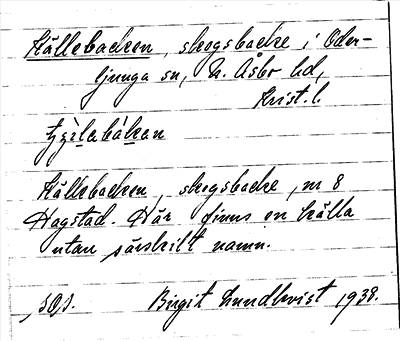 Källebacken, skogsbacke i Oder-
ljunga sn, N. Åsbo hd,
Krist. l.
Källebacken, skogsbacke, nr 8
Hagstad. Här finns en källa
utan särskilt namn.
Birgit Lundkvist 1938.